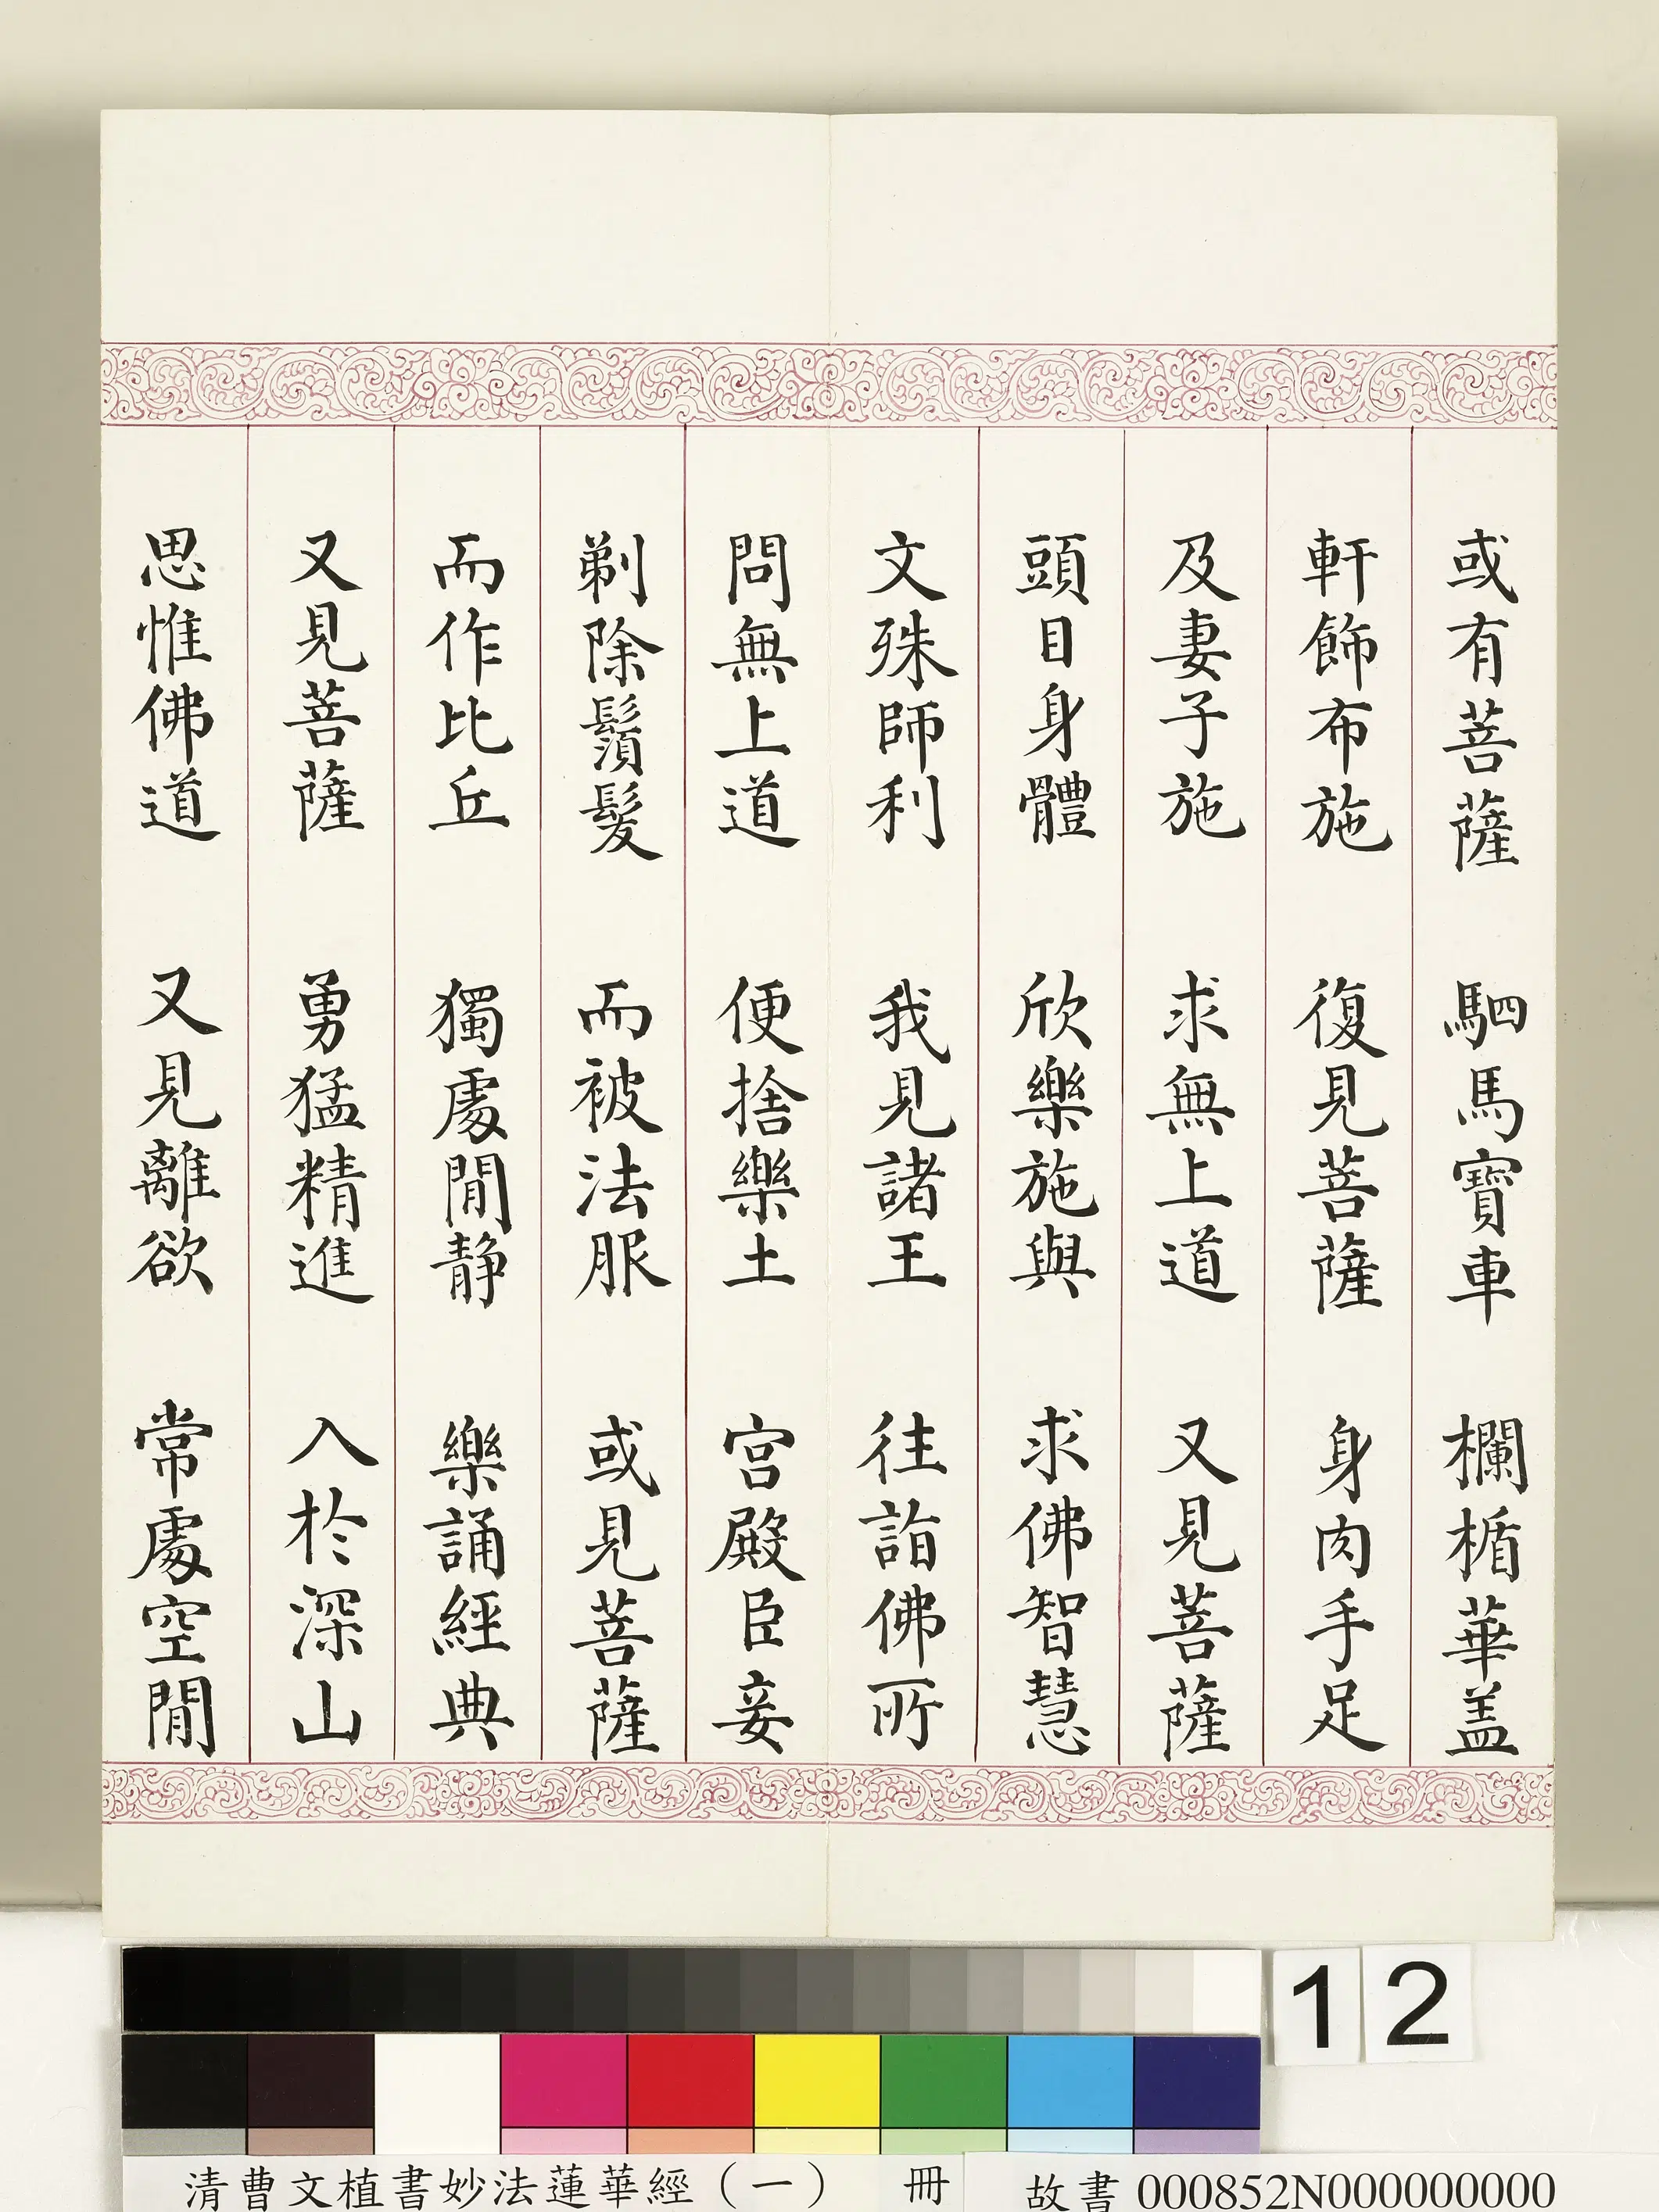 或有菩薩　駟馬寶車　欄楯華盖
軒飾布施　復見菩薩　身肉手足
及妻子施　求無上道　又見菩薩
頭目身體　欣樂施與　求佛智慧
文殊師利　我見諸王　往詣佛所
問無上道　便捨樂土　宮殿臣妾
剃除鬚髮　而被法服　或見菩薩
而作比丘　獨處閒静　樂誦經典
又見菩薩　勇猛精進　入於深山
思惟佛道　又見離欲　常處空閒
12
清曹文植書妙法蓮華經（一）　冊
故書000852N000000000